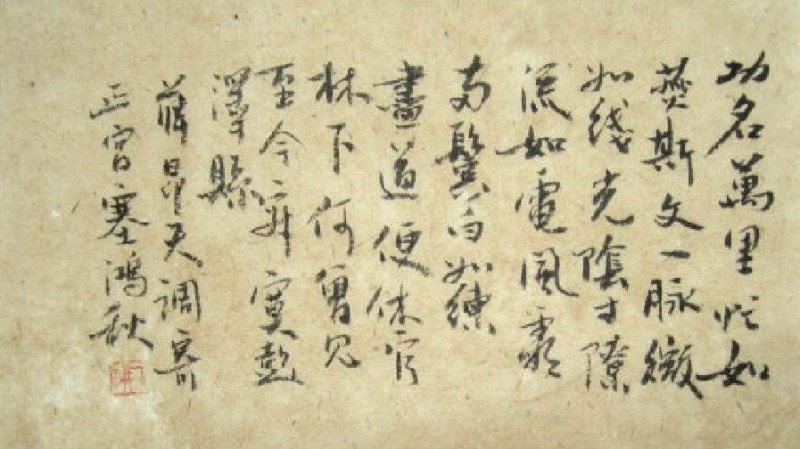 功名萬里忙如
燕斯文一脉微
如綫光陰寸隙
流如電風霜
兩鬢白如練
盡道便休官
林下何曾見
至今寂寞彭
澤縣
薛昂夫調寄
正宫塞鴻秋